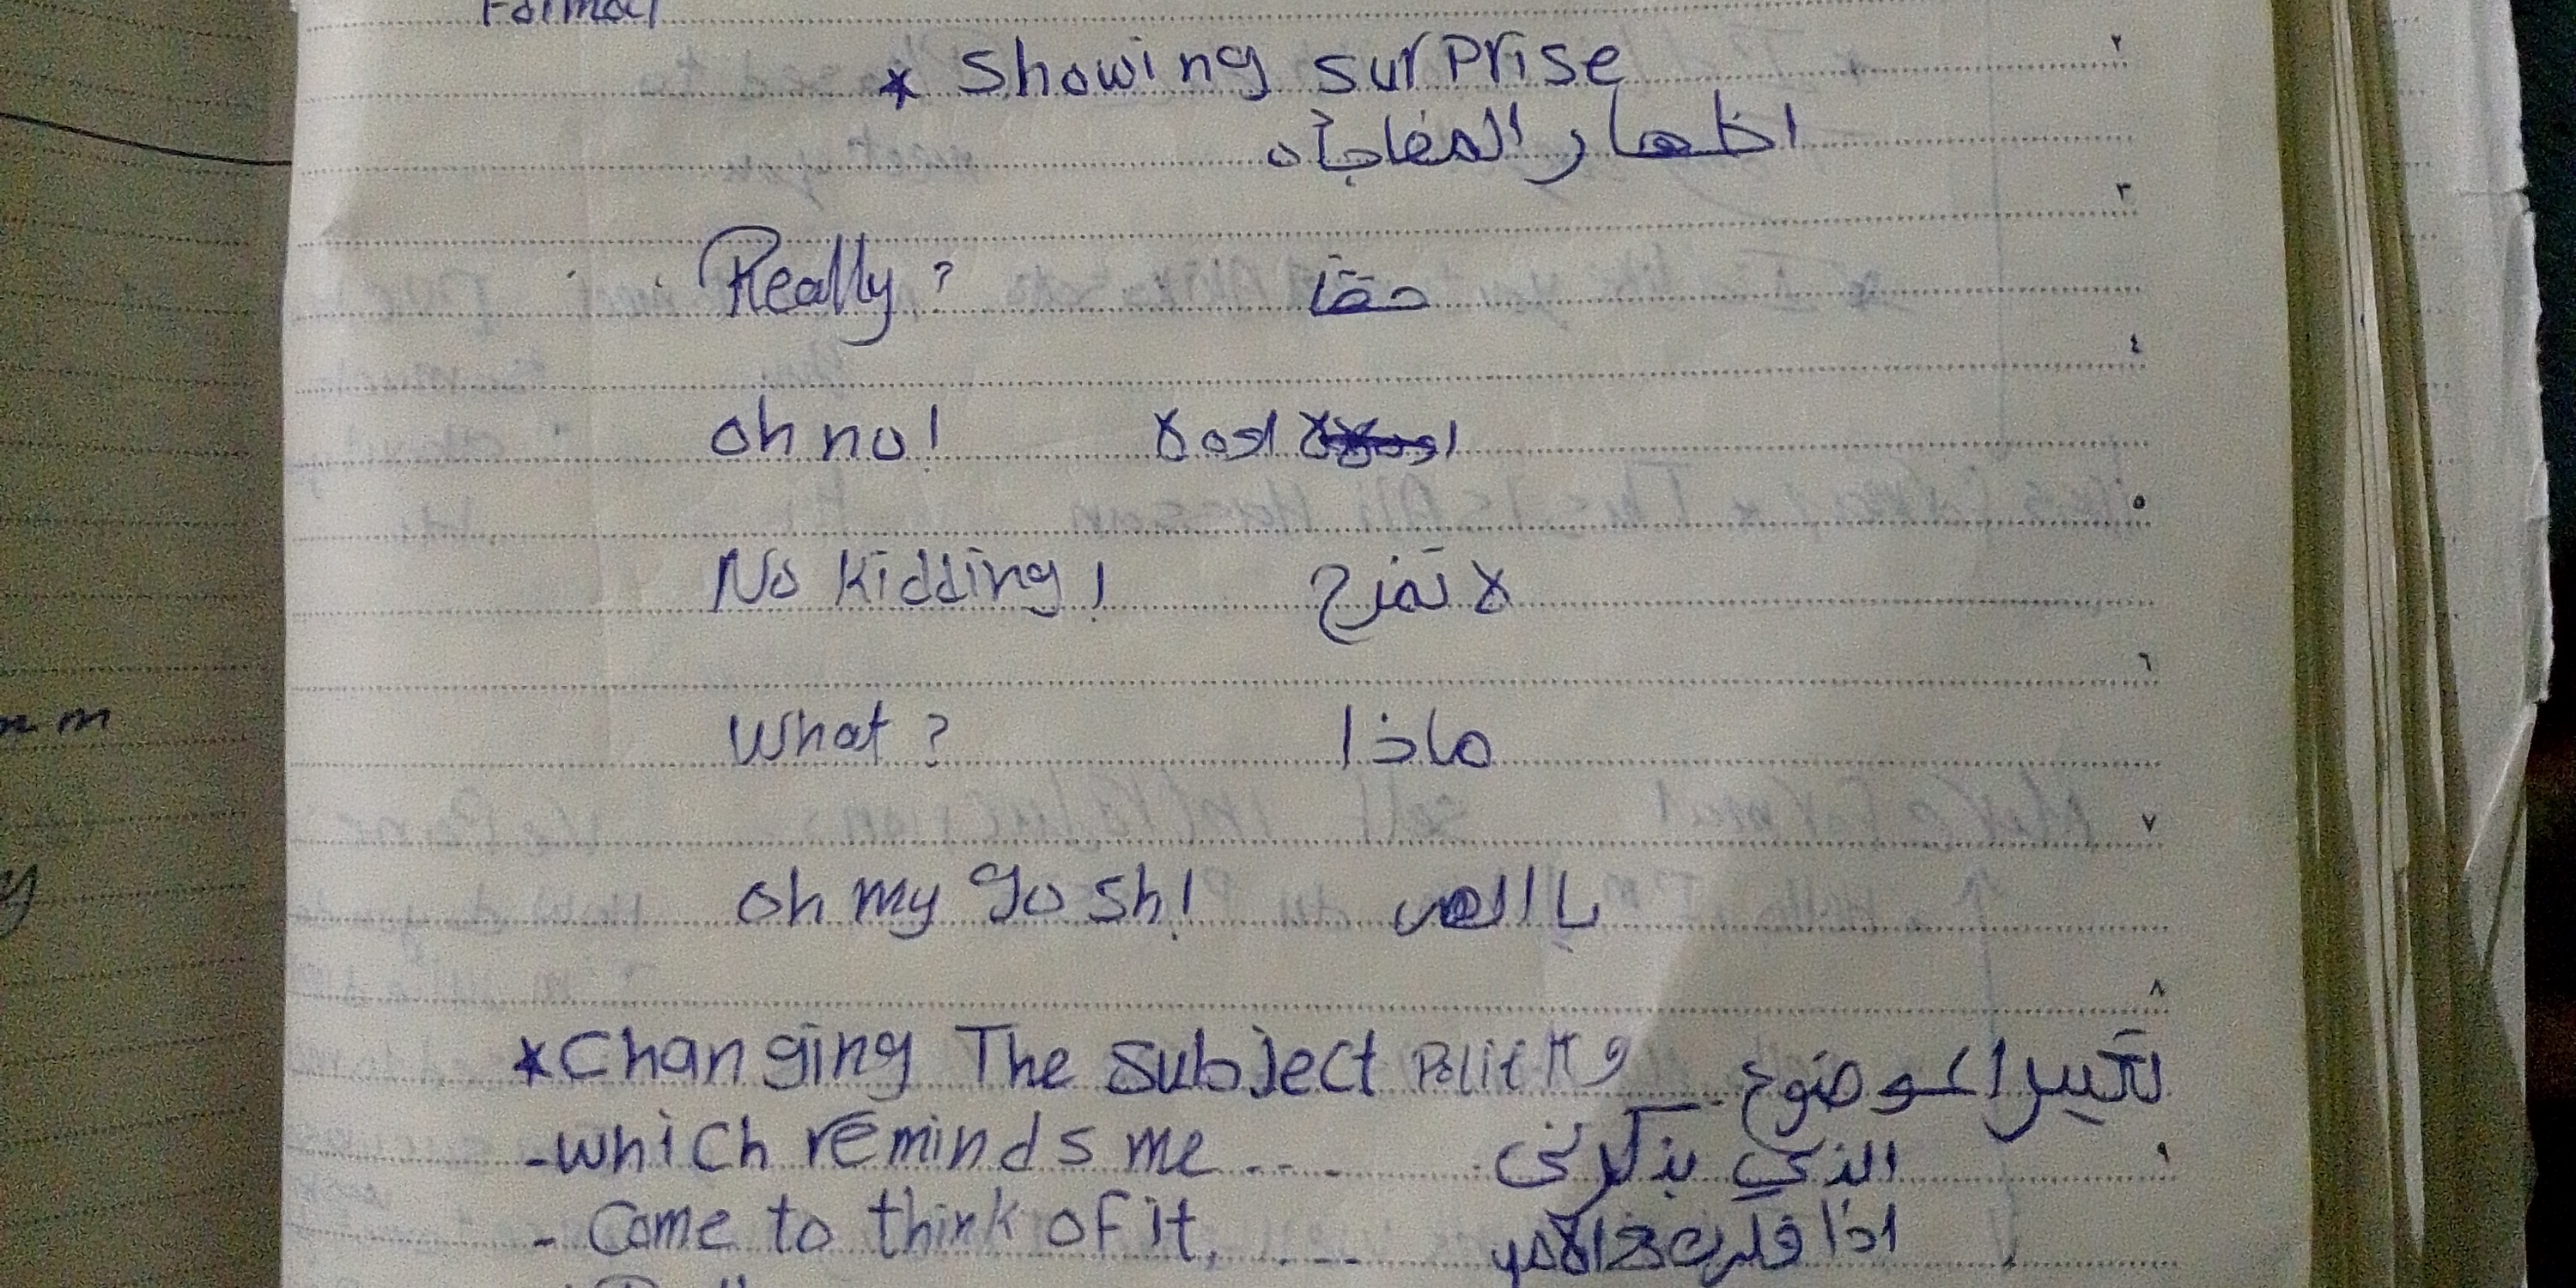 Formal
* Showing surprise
اظهار المفاجأه
Really? حقاً
oh no! اوه لا
No kidding! لا تمزح
What? ماذا
oh my gosh! يا الهي
*Changing The Subject تغيير الموضوع
-which reminds me ... الذي يذكرني
- Come to think of it, .... اذا في الامر